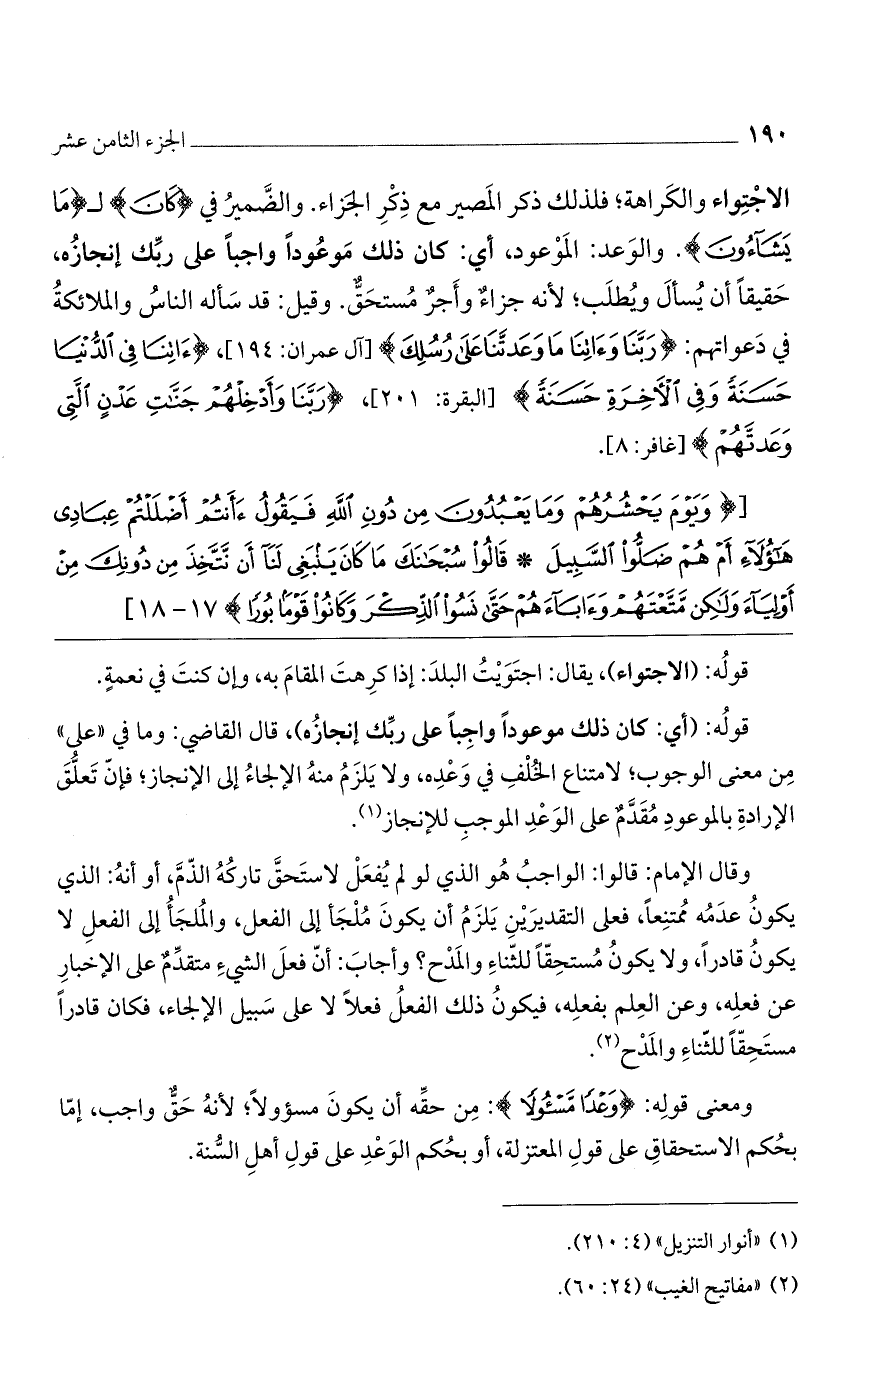 ١٩٠ الجزء الثامن عشر
الاجْتِواء والكَراهة؛ فلذلك ذكر المَصير مع ذِكْرِ الجَزاء. والضَّميرُ في ﴿كَانَ﴾ لـ﴿مَا
يَشَآءُونَ﴾. والوَعد: المَوْعود، أي: كان ذلك مَوعُوداً واجباً على ربِّك إنجازُه،
حَقيقاً أن يُسألَ ويُطلَب؛ لأنه جزاءٌ وأَجرٌ مُستحَقٌّ. وقيل: قد سَأله الناسُ والملائكةُ
في دَعواتهم: ﴿رَبَّنَا وَءَاتِنَا مَا وَعَدتَّنَا عَلَىٰ رُسُلِكَ﴾ [آل عمران: ١٩٤]، ﴿ءَاتِنَا فِى ٱلدُّنْيَا
حَسَنَةً وَفِى ٱلْأَخِرَةِ حَسَنَةً﴾ [البقرة: ٢٠١]، ﴿رَبَّنَا وَأَدْخِلْهُمْ جَنَّٰتِ عَدْنٍ ٱلَّتِى
وَعَدتَّهُمْ﴾ [غافر: ٨].
[﴿وَيَوْمَ يَحْشُرُهُمْ وَمَا يَعْبُدُونَ مِن دُونِ ٱللَّهِ فَيَقُولُ ءَأَنتُمْ أَضْلَلْتُمْ عِبَادِى
هَٰٓؤُلَآءِ أَمْ هُمْ ضَلُّوا۟ ٱلسَّبِيلَ * قَالُوا۟ سُبْحَٰنَكَ مَا كَانَ يَنۢبَغِى لَنَآ أَن نَّتَّخِذَ مِن دُونِكَ مِنْ
أَوْلِيَآءَ وَلَٰكِن مَّتَّعْتَهُمْ وَءَابَآءَهُمْ حَتَّىٰ نَسُوا۟ ٱلذِّكْرَ وَكَانُوا۟ قَوْمًۢا بُورًا﴾ ١٧-١٨]
قولُه: (الاجتواء)، يقال: اجتَوَيْتُ البلدَ: إذا كرِهتَ المقامَ به، وإن كنتَ في نعمةٍ.
قولُه: (أي: كان ذلك موعوداً واجِباً على ربِّك إنجازُه)، قال القاضي: وما في «على»
مِن معنى الوجوب؛ لامتناع الخُلْفِ في وَعْدِه، ولا يَلزَمُ منهُ الإلجاءُ إلى الإنجاز؛ فإنّ تَعلُّقَ
الإرادةِ بالموعودِ مُقَدَّمٌ على الوَعْدِ الموجبِ للإنجاز(١).
وقال الإمام: قالوا: الواجبُ هُو الذي لو لم يُفعَلْ لاستَحقَّ تاركُهُ الذّمَّ، أو أنهُ: الذي
يكونُ عدَمُه مُمتنِعاً، فعلى التقديرَيْنِ يَلزَمُ أن يكونَ مُلْجَأ إلى الفعل، والمُلجَأُ إلى الفعلِ لا
يكونُ قادراً، ولا يكونُ مُستحِقّاً للثّناءِ والمَدْح؟ وأجابَ: أنّ فعلَ الشيءِ متقدِّمٌ على الإخبارِ
عن فعلِه، وعن العِلم بفعلِه، فيكونُ ذلك الفعلُ فعلاً لا على سَبيل الإلجاء، فكان قادراً
مستَحِقّاً للثّناءِ والمَدْح(٢).
ومعنى قولِه: ﴿وَعْدًا مَّسْـُٔولًا﴾: مِن حقِّه أن يكونَ مسؤولاً؛ لأنهُ حَقٌّ واجب، إمّا
بحُكم الاستحقاقِ على قولِ المعتزلة، أو بحُكم الوَعْدِ على قولِ أهلِ السُّنة.
(١) «أنوار التنزيل» (٤: ٢١٠).
(٢) «مفاتيح الغيب» (٢٤: ٦٠).